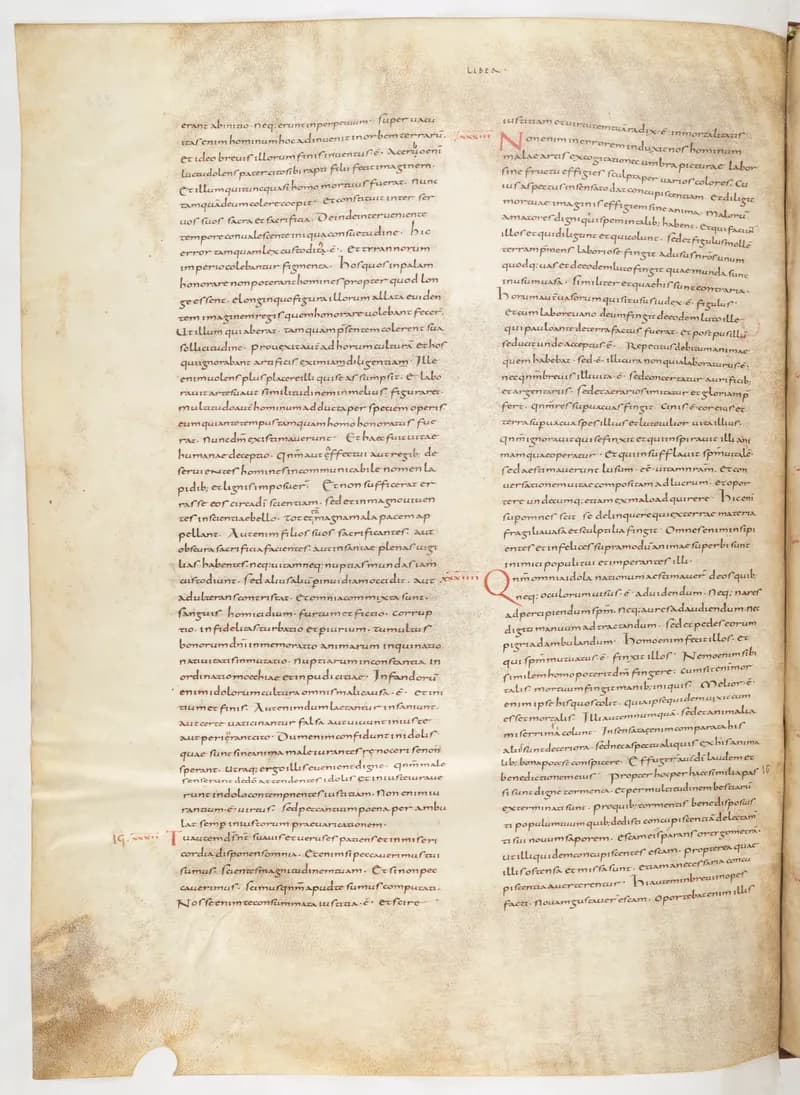 LIBER
erant ab initio · neq; erunt in perpetuum · super uacui
tas enim hominum hoc adinuenit in orbem terrarū ·
et ideo breuis illorum finis inuentus ē · Acerbo enī
luctu dolens pater cito sibi rapti filii fecit imaginem
Et illum qui tunc quasi homo mortuus fuerat · nunc
tamquā deum colere coepit · et constituit inter ser
uos suos sacra et sacrificia · Deinde interueniente
tempore conualescente iniqua consuetudine · hic
error tamquam lex custodita ē · et tyrannorum
imperio colebantur figmenta · hos quos in palam
honorare non poterant homines propter quod lon
ge essent · elonginquo figura illorum allata euiden
tem imaginem regis quem honorare uolebant fecer ·
Ut illum qui aberat · tamquam psentem colerent sua
sollicitudine · prouexit aut ad horum culturā et hos
qui ignorabant artificis eximia diligentiam · Ille
enim uolens plus placere illi qui se assumpsit · elabo
rauit arte sua ut similitudinem in melius figuraret
multitudo aut hominum adducta per speciem operis
eum qui ante tempus tamquam homo honoratus fue
rat · nunc dm existimauerunt · Et haec fuit uitae
humanae deceptio · qnm aut effectui aut regib; de
seruientes homines incommunicabile nomen la
pidib; et lignis imposuer · Et non sufficerat er
rasse eos circa dī scientiam · sed et in magno uiuen
tes inscientiae bello · tot et tā magna mala pacem ap
pellant · Aut enim filios suos sacrificantes · aut
obscura sacrificia facientes · aut insaniae plenas uigi
lias habentes · neq; uitam neq; nuptias mundas iam
custodiunt · sed alius alium p inuidiam occidit · aut
adulterans contristat · et omnia commixta sunt ·
sanguis homicidium · furtum et fictio · corrup
tio · infidelitas turbatio et piurium · tumultus
bonorum dnī inmemoratio animarum inquinatio
natiuitatis inmutatio · nuptiarum inconstantia in
ordinatio moechiae et inpudicitiae · Infandorū
enim idolorum cultura omnis mali causa · ē · et ini
tium et finis · Aut enim dum laetantur insaniunt ·
aut certe uaticinantur falsa aut uiuunt iniuste
aut peierant cito · Dum enim confidunt in idolis
quae sunt sine anima male iurantes se noceri se non
sperant · Utraq; ergo illis euenient digne · qnm male
senserunt de dō attendentes idolis et iniuste iuraue
runt in dolo contempnentes iustitiam · Non enim iu
rantium · ē · uirtus · sed peccantium poena per ambu
lat semp iniustorum praeuaricationem ·
xxxii Tu autem ds nr suauis et uerus es patiens et in miseri
cordia disponens omnia · Et enim si peccauerimus tui
sumus · scientes magnitudinem tuam · Et si non pec
cauerimus · scimus qnm apud te sumus computati ·
Nosse enim te consummata iustitia · ē · et scire
iustitiam et uirtutem tuā radix · ē · inmortalitatis ·
xxxiii Non enim in errorem induxit nos hominum
malae artis excogitatio nec umbra picturae labor
sine fructu effigies sculpta per uarios colores · Cu
ius aspectus insensato dat concupiscentiam · Et diligit
mortuae imaginis effigiem sine anima · Malorū
amatores digni qui spem in talib; habent · Et qui faciunt
illos et qui diligunt et qui colunt · sed et figulus mollē
terram pmens laboriose fingit ad usus nros unum
quodq; uas et de eodem luto fingit quae munda sunt
in usum uasa · similiter et quae his sunt contraria ·
horum aut uasorum quis sit usus iudex · ē · figulus ·
et cum labore uano deum fingit de eodem luto ille
qui paulo ante de terra factus fuerat · et post pusillū
se ducit unde acceptus ē · Repetitus debitum animae
quem habebat · sed · ē · illi cura non quia laboraturus · ē ·
nec qnm breuis illi uita · ē · sed concertatur aurificib;
et argentariis · sed et aerarios imitatur et gloriam p
fert · qnm res supuacuas fingit · Cinis · ē · cor eius et
terra supuacua spes illius et luto uilior uita illius ·
qnm ignorauit qui se finxit et qui inspirauit illi ani
mam quae operatur · Et qui insufflauit spm uitalē ·
sed aestimauerunt lusum · eē · uitam nram · et con
uersationem uitae compositam ad lucrum · et opor
tere undecumq; etiam ex malo adquirere · hic enī
sup omnes scit se delinquere qui ex terrae materia
fragilia uasa et sculptilia fingit · Omnes enim insipi
entes et infelices supra modū animae superbi sunt
inimici populi tui et imperantes illi ·
xxxiiii Qnm omnia idola nationum aestimauer deos quib;
neq; oculorum uisus · ē · ad uidendum · neq; nares
ad percipiendum spm · neq; aures ad audiendum · nec
digiti manuum ad tractandum · sed et pedes eorum
pigri ad ambulandum · homo enim fecit illos · et
qui spm mutuatus · ē · finxit illos · Nemo enim sibi
similem homo poterit dm fingere · cum sit enī mor
talis · mortuum fingit manib; iniquis · Melior · ē ·
enim ipse his quos colit · quia ipse quidem uixit cum
esset mortalis · Illi autem numquā · sed et animalia
miserrima colunt · Insensata enim comparata his
aliis sunt deteriora · sed nec aspectu aliquis ex his anima
lib; bona potest conspicere · Effugerunt aut dī laudem et
benedictionem eius · Propter hoc per haec similia pas
si sunt digne tormenta · et per multitudinem bestiarū
exterminati sunt · pro quib; tormentis bene disposuisti
populum tuum quib; dedisti concupiscentiā delectam
ti sui nouum saporem · escam eis parans ortygometrā ·
ut illi quidem concupiscentes escam · propter ea quae
illis ostensa et missa sunt · etiam a necessaria concu
piscentia auerterentur · hi autem in breui inopes
facti · nouam gustauer escam · oportebat enim illis